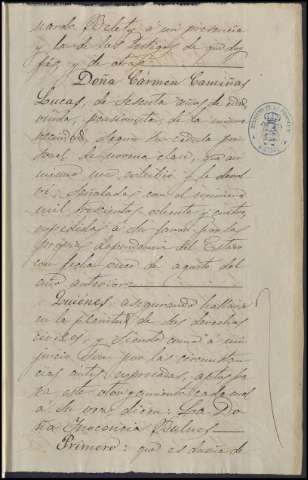 y la de los testigos de que doy
fé, y de otra:
Doña Cármen Camiñas
Lucas, de sesenta años de edad,
viuda, pensionista, de la misma
vecindad, segun su cédula per
sonal de novena clase, que an
mismo me exhibió y le devol
ví, señalada con el número
mil trescientos ochenta y cuatro,
expedida á su favor por las
propias dependencias del Estado
con fecha once de agosto del
año anterior
Quienes, asegurando hallarse
en la plenitud de sus derechos
civiles, y siendo como á mi
juicio son por las circunstan
cias antes expresadas, aptas pa
ra este otorgamiento, cada una
á su vez dicen: La Do
ña Inocencia Bulnes
Primero: que es dueña de